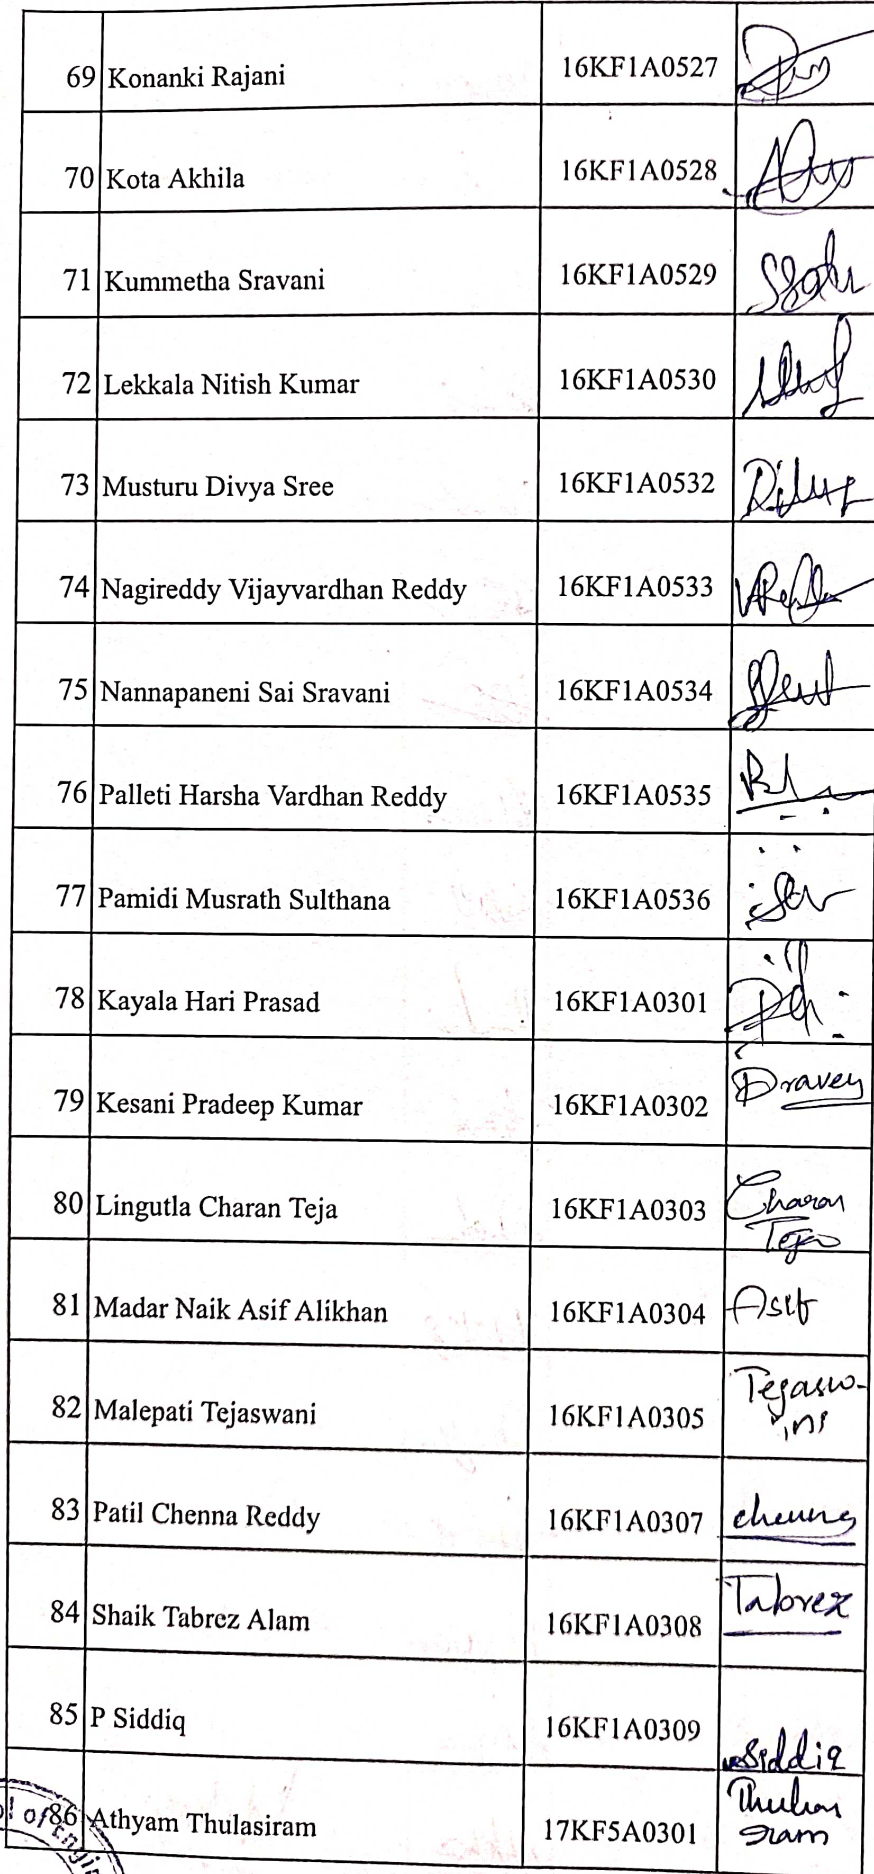 69 Konanki Rajani 16KF1A0527
70 Kota Akhila 16KF1A0528
71 Kummetha Sravani 16KF1A0529
72 Lekkala Nitish Kumar 16KF1A0530
73 Musturu Divya Sree 16KF1A0532
74 Nagireddy Vijayvardhan Reddy 16KF1A0533
75 Nannapaneni Sai Sravani 16KF1A0534
76 Palleti Harsha Vardhan Reddy 16KF1A0535
77 Pamidi Musrath Sulthana 16KF1A0536
78 Kayala Hari Prasad 16KF1A0301
79 Kesani Pradeep Kumar 16KF1A0302
80 Lingutla Charan Teja 16KF1A0303 Charan
Teja
81 Madar Naik Asif Alikhan 16KF1A0304 Asif
82 Malepati Tejaswani 16KF1A0305 Tejasw-
ini
83 Patil Chenna Reddy 16KF1A0307
84 Shaik Tabrez Alam 16KF1A0308 Tabrez
85 P Siddiq 16KF1A0309 Siddiq
86 Athyam Thulasiram 17KF5A0301
of